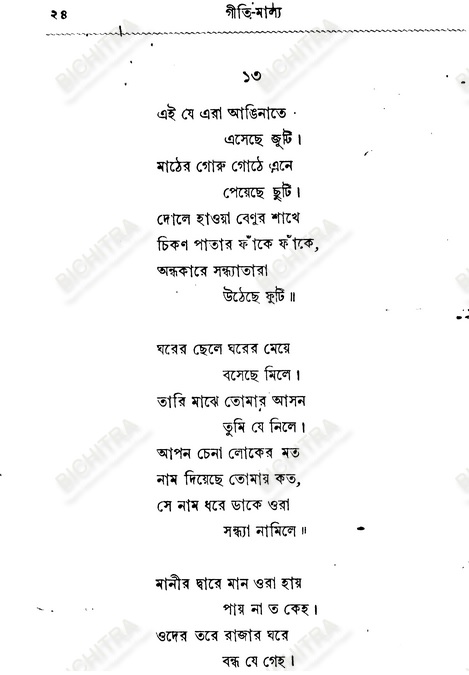 ২৪
গীতি-মাল্য
১৩
এই যে এরা আঙিনাতে
এসেছে জুটি।
মাঠের গোরু গোঠে এনে
পেয়েছে ছুটি।
দোলে হাওয়া বেণুর শাখে
চিকণ পাতার ফাঁকে ফাঁকে,
অন্ধকারে সন্ধ্যাতারা
উঠেছে ফুটি॥
ঘরের ছেলে ঘরের মেয়ে
বসেছে মিলে।
তারি মাঝে তোমার আসন
তুমি যে নিলে।
আপন চেনা লোকের মত
নাম দিয়েছে তোমায় কত,
সে নাম ধরে ডাকে ওরা
সন্ধ্যা নামিলে॥
মানীর দ্বারে মান ওরা হায়
পায় না ত কেহ।
ওদের তরে রাজার ঘরে
বন্ধ যে গেহ।
BICHITRA
BICHITRA
BICHITRA
BICHITRA
BICHITRA
BICHITRA
BICHITRA